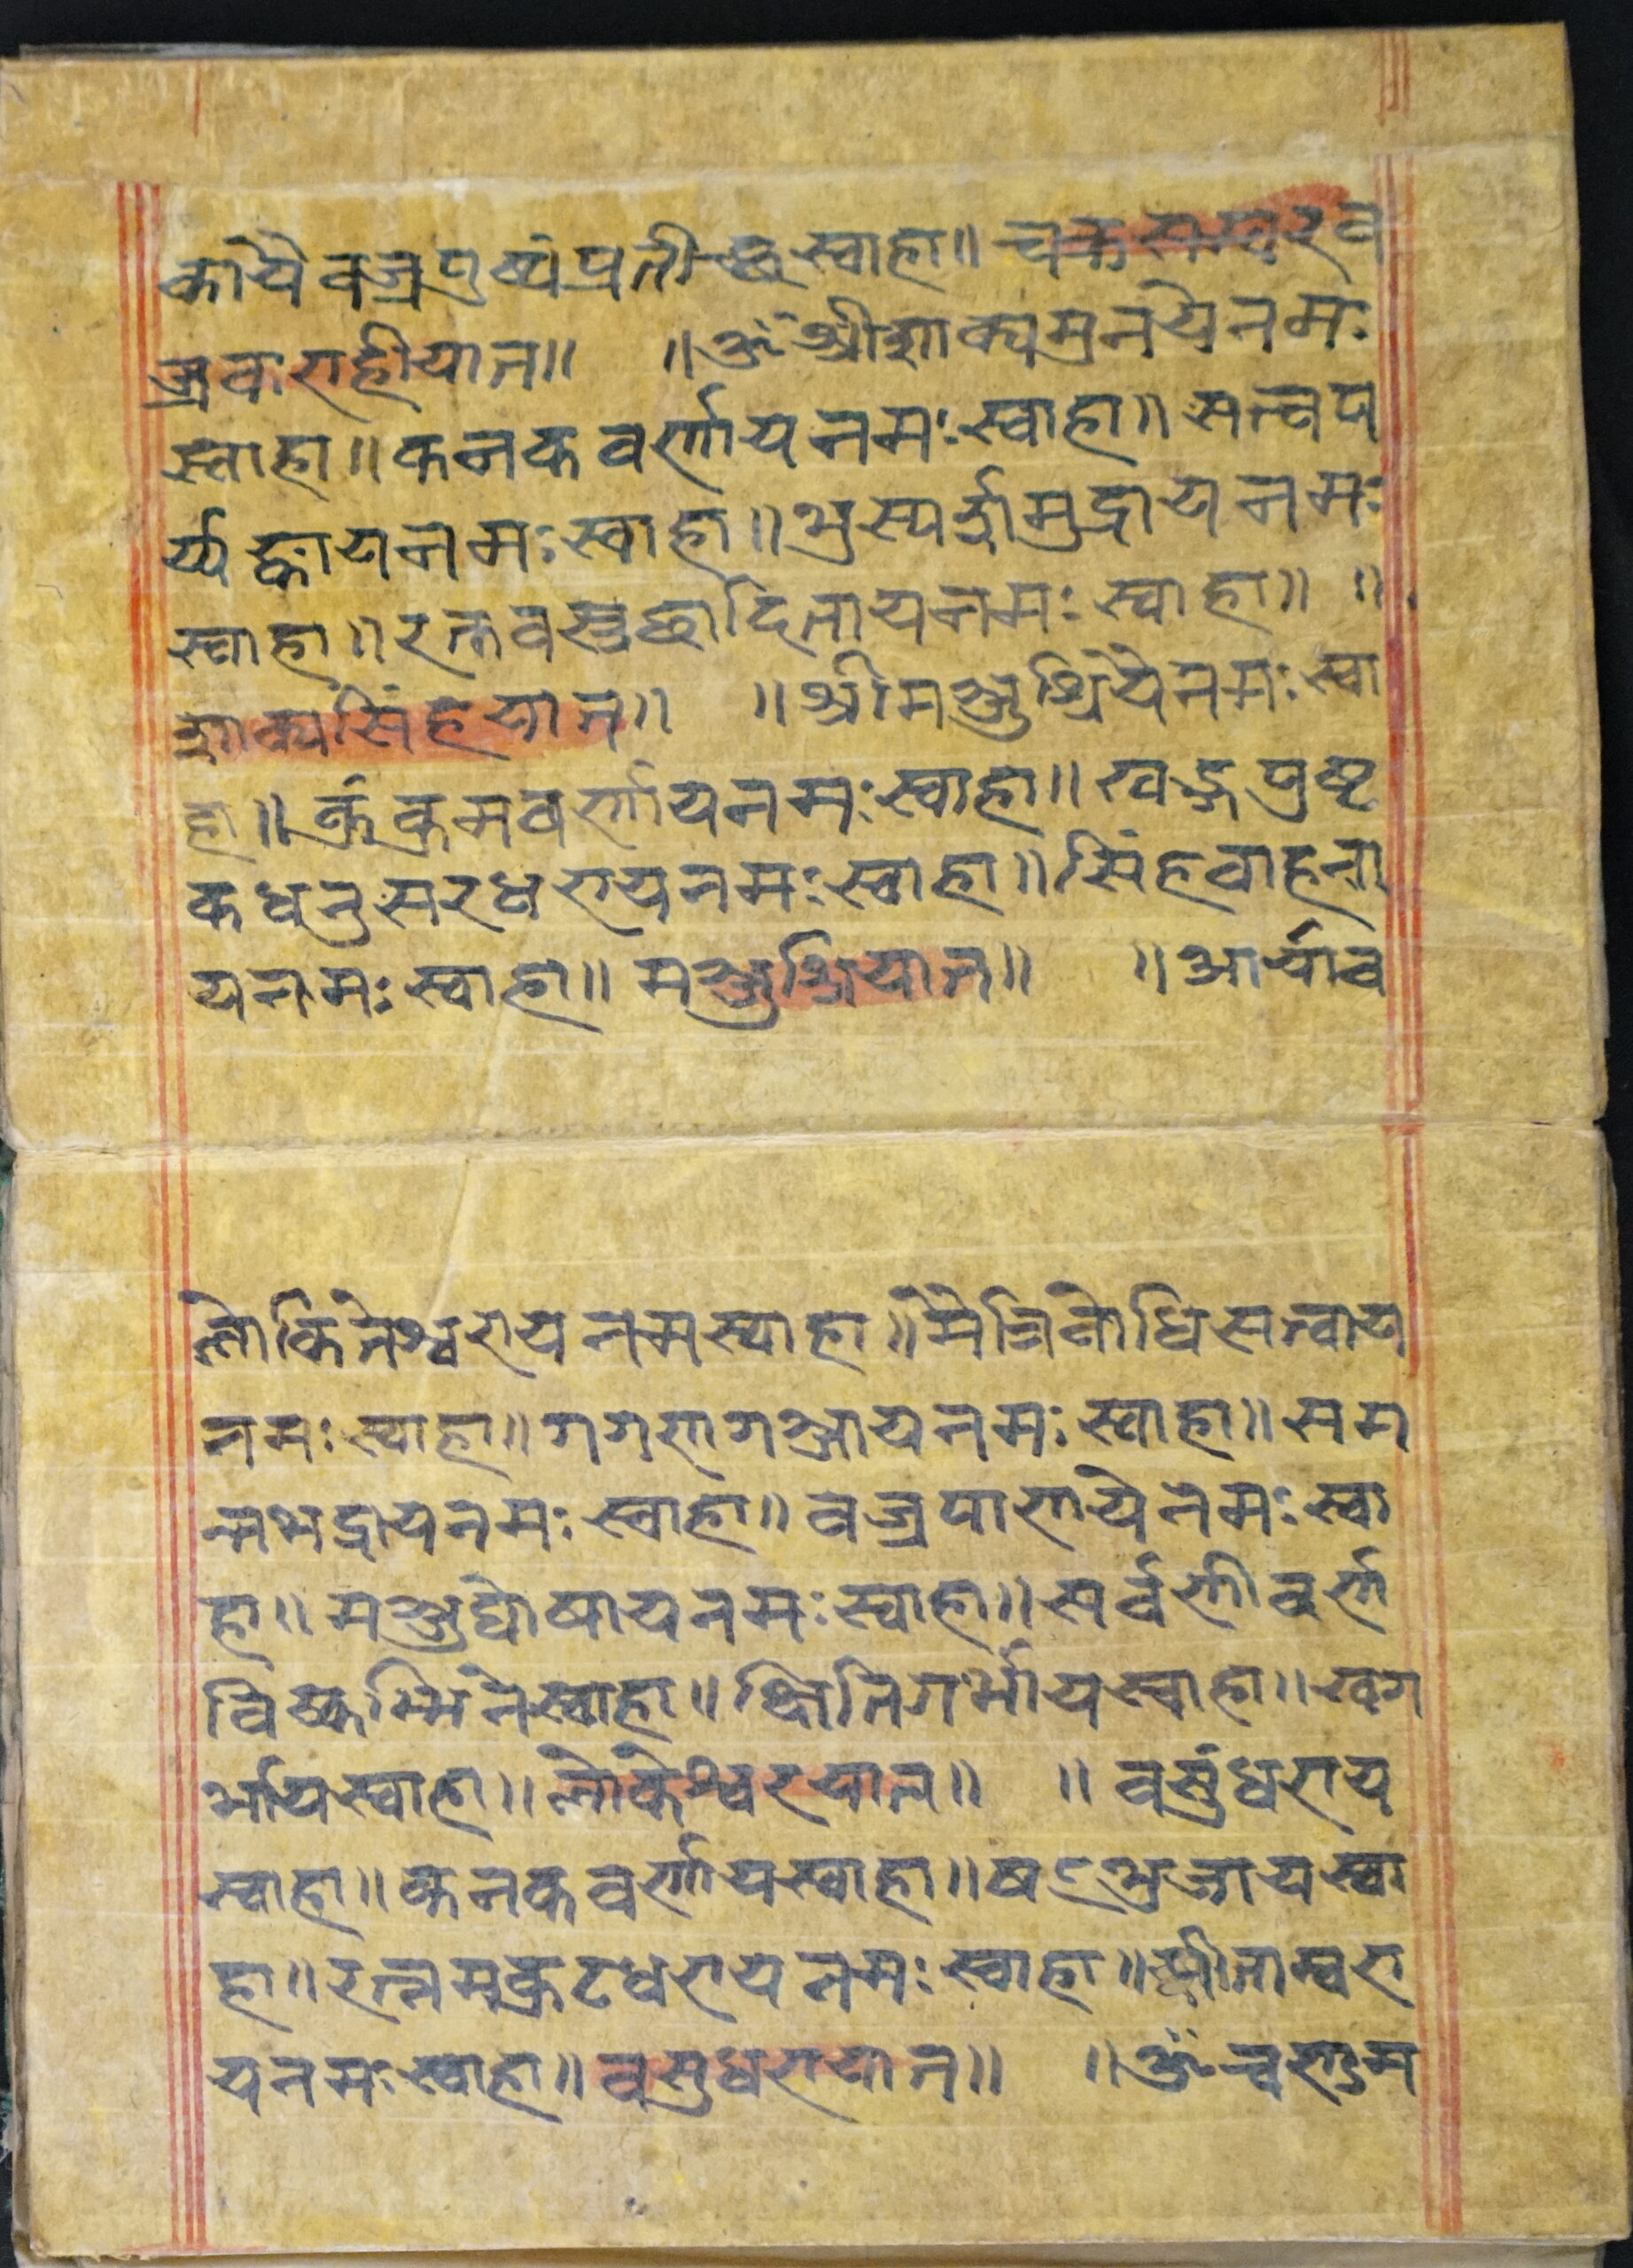 कायै वज्रपुष्पं प्रतीच्छ स्वाहा॥ चक्रसम्वरव
ज्रवराहीयात॥ ॥ॐ श्रीशाक्यमुनयेनमः
स्वाहा॥ कनकवर्णायनमःस्वाहा॥ सत्वप
र्य्यङ्कायनमःस्वाहा॥ भुस्पर्शमुद्रायनमः
स्वाहा॥ रक्तवस्त्रछादितायनमःस्वाहा॥ ॥
शाक्यसिंहयात॥ ॥श्रीमञ्जुश्रियेनमःस्वा
हा॥ कुंकुमवर्णायनमःस्वाहा॥ खड्गपुष्ट
कधनुसरधरायनमःस्वाहा॥ सिंहवाहना
यनमःस्वाहा॥ मञ्जुश्रियात॥ ॥आर्याव
लोकितेश्वरायनमस्वाहा॥ मैत्रिबोधिसत्वाय
नमःस्वाहा॥ गगणगञ्जायनमःस्वाहा॥ सम
न्तभद्रायनमःस्वाहा॥ वज्रपाणयेनमःस्वा
हा॥ मञ्जुघोषायनमःस्वाहा॥ सर्वणीवर्ण
विष्कम्भिनेस्वाहा॥ क्षितिगर्भायस्वाहा॥ खग
र्भायस्वाहा॥ लोकेश्वरयात॥ ॥वसुंधराय
स्वाहा॥ कनकवर्णायस्वाहा॥ षड्भुजायस्वा
हा॥ रत्नमुकुटधरायनमःस्वाहा॥ पीताम्वरा
यनमःस्वाहा॥ वसुधरायात॥ ॥ॐ